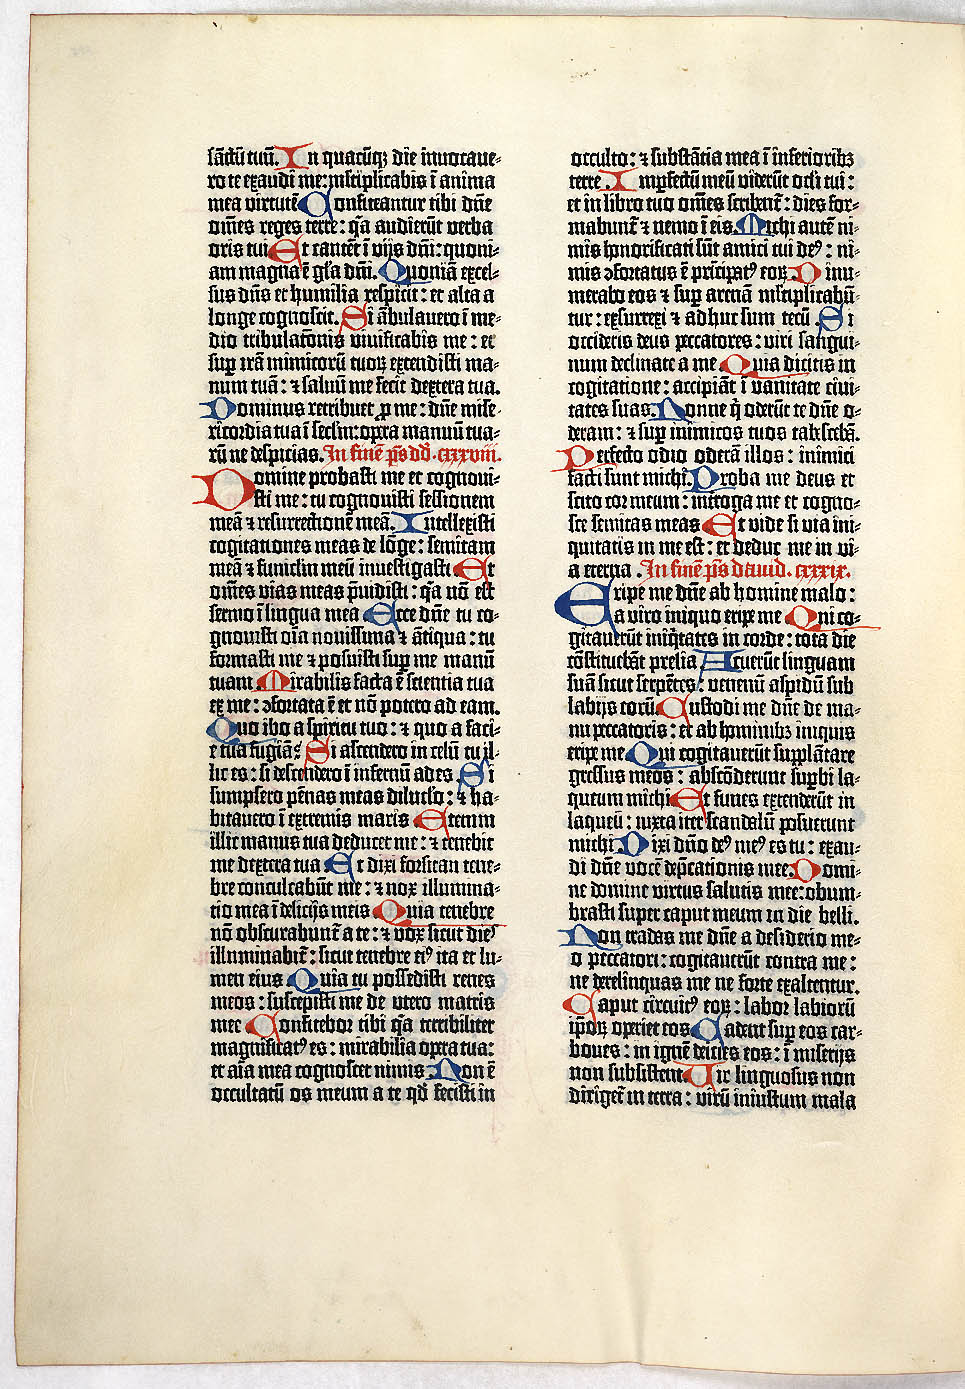 sãctũ tuũ. In quacũqꝫ die inuocaue⸗
ro te exaudi me: mĩtiplicabis ĩ anima
mea virtutẽ Confiteantur tibi dñe
om̃es reges terre: q̃a audierũt verba
oris tui Et cantẽt ĩ vijs dñi: quoni⸗
am magna ẽ gl̃a dñi. Quoniã excel⸗
sus dñs et humilia respicit: et alta a
longe cognoscit. Si ãbulauero ĩ me⸗
dio tribulatõnis viuificabis me: et
sup̱ irã inimicorũ tuoꝝ extendisti ma⸗
num tuã: ⁊ saluũ me fecit dextera tua.
Dominus retribuet ꝓ me: dñe mise⸗
ricordia tua ĩ sec̃lm: opera manuũ tua⸗
rũ ne despicias. In finẽ p̃s dd̃. cxxxviii.
Domine probasti me et cognoui⸗
sti me: tu cognouisti sessionem
meã ⁊ resurrectionẽ meã. Intellexisti
cogitationes meas de lõge: semitam
meã ⁊ funiclm̃ meũ inuestigasti Et
om̃es vias meas p̃uidisti: q̃a nõ est
sermo ĩ lingua mea Ecce dñe tu co⸗
gnouisti oĩa nouissima ⁊ ãtiqua: tu
formasti me ⁊ posuisti sup̱ me manũ
tuam Mirabilis facta ẽ scientia tua
ex me: ꝯfortata ẽ et nõ potero ad eam.
Quo ibo a spiritu tuo: ⁊ quo a faci⸗
e tua fugiã? Si ascendero in celũ tu il⸗
lic es: si descendero ĩ infernũ ades Si
sumpsero pẽnas meas diluclo: ⁊ ha⸗
bitauero ĩ extremis maris Etenim
illic manus tua deducet me: ⁊ tenebit
me dextera tua Et dixi forsitan tene⸗
bre conculcabũt me: ⁊ nox illumina⸗
tio mea ĩ delicijs meis Quia tenebre
nõ obscurabunt̃ a te: ⁊ nox sicut dieꝰ
illuminabit̃: sicut tenebre eiꝰ ita et lu⸗
men eius Quia tu possedisti renes
meos: suscepisti me de vtero matris
mee Confitebor tibi q̃a terribiliter
magnificatꝰ es: mirabilia opera tua:
et aĩa mea cognoscet nimis Non ẽ
occultatũ os meum a te qđ fecisti in
occulto: ⁊ substãtia mea ĩ inferioribꝫ
terre. Imp̱fectũ meũ viderũt ocĩi tui:
et in libro tuo om̃es scribent̃: dies for⸗
mabunt̃ ⁊ nemo ĩ eis. Michi autẽ ni⸗
mis honorificati sũt amici tui deꝰ: ni⸗
mis ꝯfortatus ẽ pricipatꝰ eoꝝ Dinu⸗
merabo eos ⁊ sup̱ arenã mĩtiplicabũ⸗
tur: exsurrexi ⁊ adhuc sum tecũ Si
occideris deus peccatores: viri sangui⸗
num declinate a me Quia dicitis in
cogitatione: accipiãt ĩ vanitate ciui⸗
tates suas. Nonne q̃ oderũt te dñe o⸗
deram: ⁊ sup̱ inimicos tuos tabescebã.
Perfecto odio oderã illos: inimici
facti sunt michi. Proba me deus et
scito cor meum: interroga me et cogno⸗
sce semitas meas Et vide si via ini⸗
quitatis in me est: et deduc me in vi⸗
a eterna. In finẽ p̃s dauid. cxxxix.
Eripe me dñe ab homine malo:
a viro iniquo eripe me Qui co⸗
gitauerũt iniq̃tates in corde: tota die
cõstituebãt prelia Acuerũt linguam
suã sicut serpẽtes: venenũ aspidũ sub
labijs eorũ Custodi me dñe de ma⸗
nu peccatoris: et ab hominibꝫ iniquis
eripe me Qui cogitauerũt supplãtare
gressus meos: abscõderunt sup̱bi la⸗
queum michi Et funes extenderũt in
laqueũ: iuxta iter scandalũ posuerunt
michi Dixi dño deꝰ meꝰ es tu: exau⸗
di dñe vocẽ dep̃cationis mee. Domi⸗
ne domine virtus salutis mee: obum⸗
brasti super caput meum in die belli.
Non tradas me dñe a desiderio me⸗
o peccatori: cogitauerũt contra me:
ne derelinquas me ne forte exaltentur.
Caput circuitꝰ eoꝝ: labor labiorũ
ip̃oꝝ operiet eos Cadent sup̱ eos car⸗
bones: in ignẽ deicies eos: ĩ miserijs
non subsistent Uir linguosus non
diriget̃ in terra: virũ iniustum mala